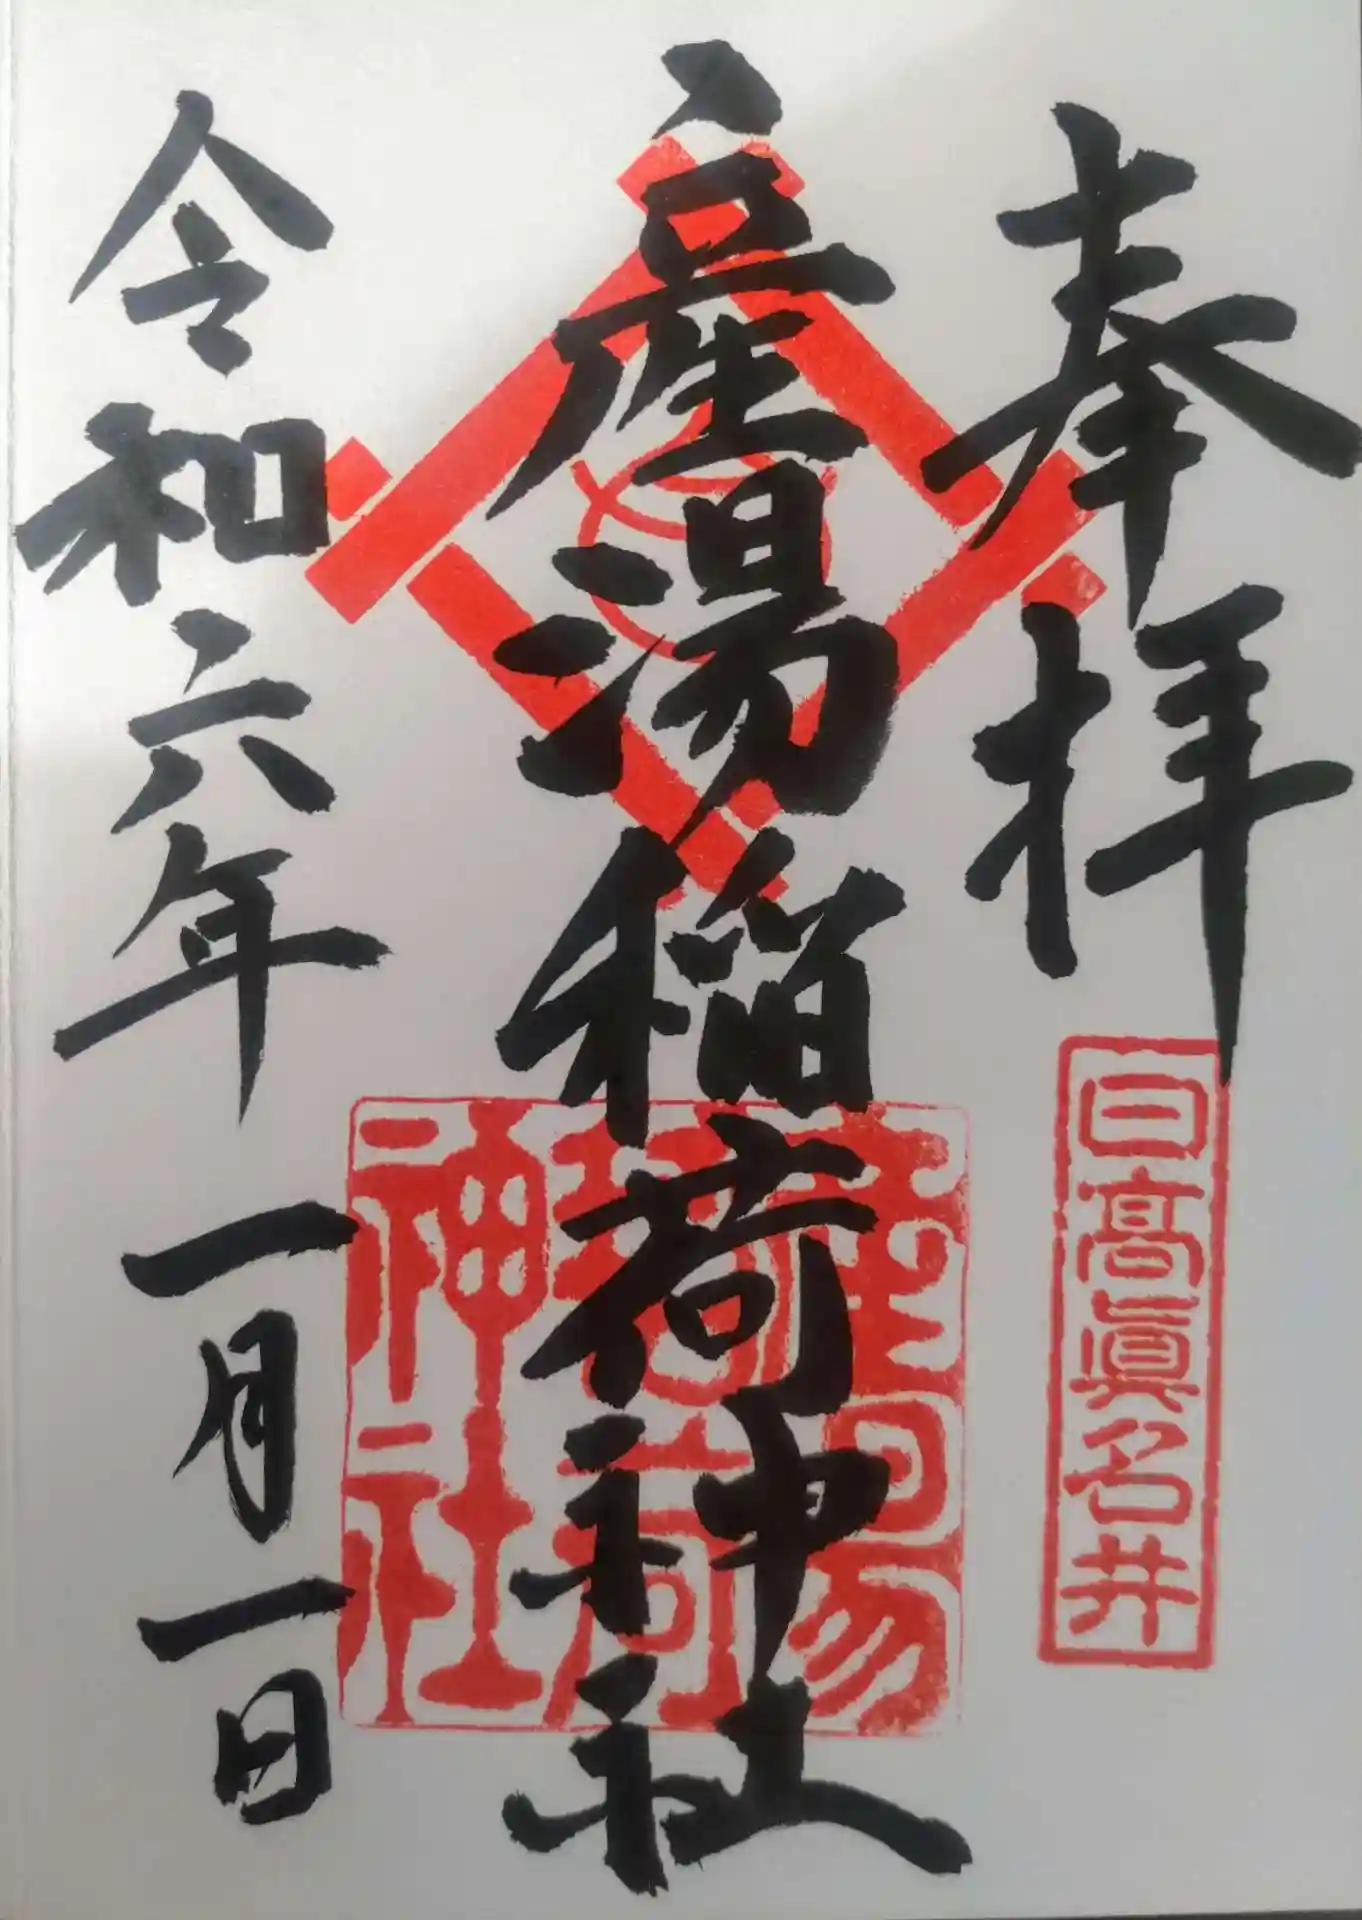 奉拝
日髙眞名井
産湯稲荷神社
産湯稲荷神社
令和六年一月一日